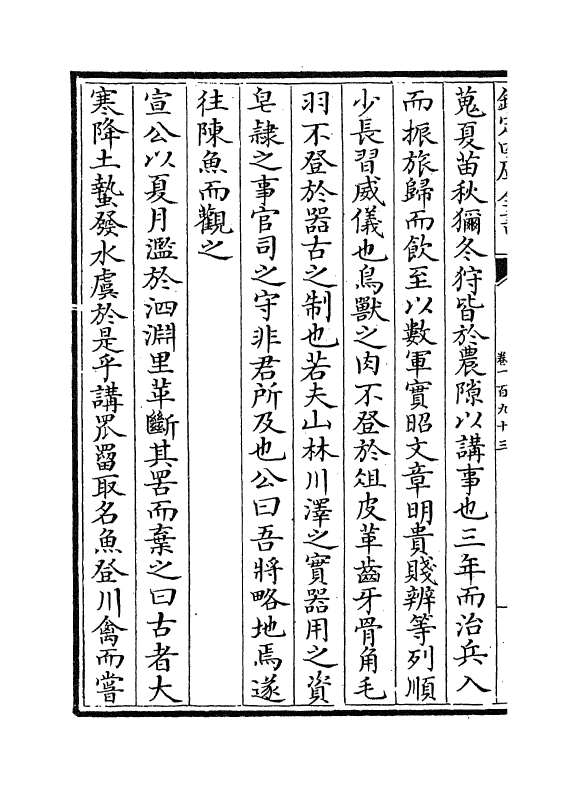 欽定四庫全書
卷一百九十三
蒐夏苗秋獮冬狩皆於農隙以講事也三年而治兵入
而振旅歸而飲至以數軍實昭文章明貴賤辨等列順
少長習威儀也鳥獸之肉不登於俎皮革齒牙骨角毛
羽不登於器古之制也若夫山林川澤之實器用之資
皂隷之事官司之守非君所及也公曰吾將略地焉遂
往陳魚而觀之
宣公以夏月濫於泗淵里革斷其罟而棄之曰古者大
寒降土蟄發水虞於是乎講罛罶取名魚登川禽而嘗